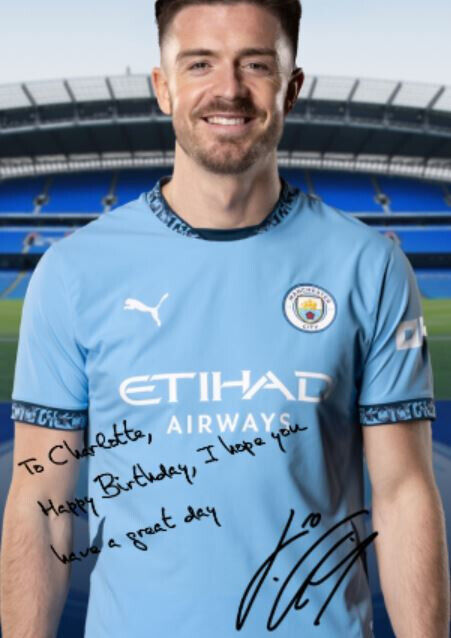 MANCHESTER
CITY
ETIHAD
AIRWAYS
To Charlotte,
Happy Birthday, I hope you
have a great day
10